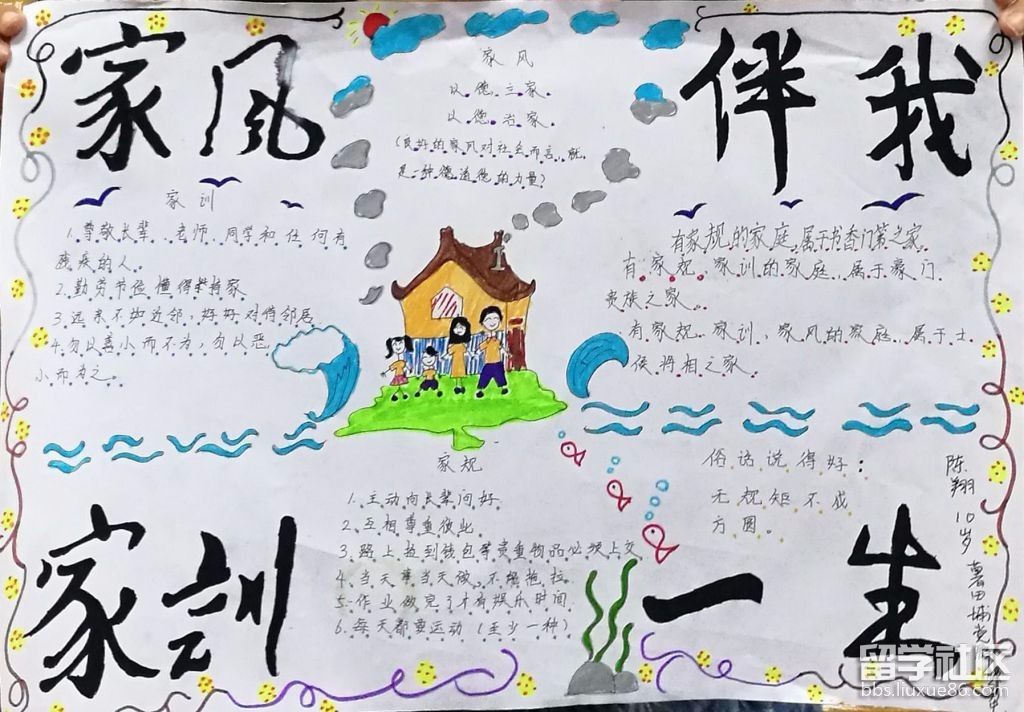 家风
伴我
家训
一生
家风
以德立家
以德治家
(良好的家风对社会而言,就
是一种德道德的力量)
家训
1.尊敬长辈、老师、同学和任何有
残疾的人。
2.勤劳节俭懂得持家
3.远亲不如近邻,好好对待邻居
4.勿以善小而不为,勿以恶
小而为之。
有家规的家庭,属于书香门第之家。
有家规、家训的家庭,属于豪门
贵族之家。
有家规、家训、家风的家庭,属于士
侯将相之家。
家规
1.主动向长辈问好
2.互相尊重彼此
3.路上捡到钱包等贵重物品必须上交
4.当天事当天做,不拖拉
5.作业做完了才有娱乐时间
6.每天都要运动(至少一种)
俗话说得好:
无规矩不成
方圆。
陈翔 10岁
留学社区
bbs.liuxue86.com